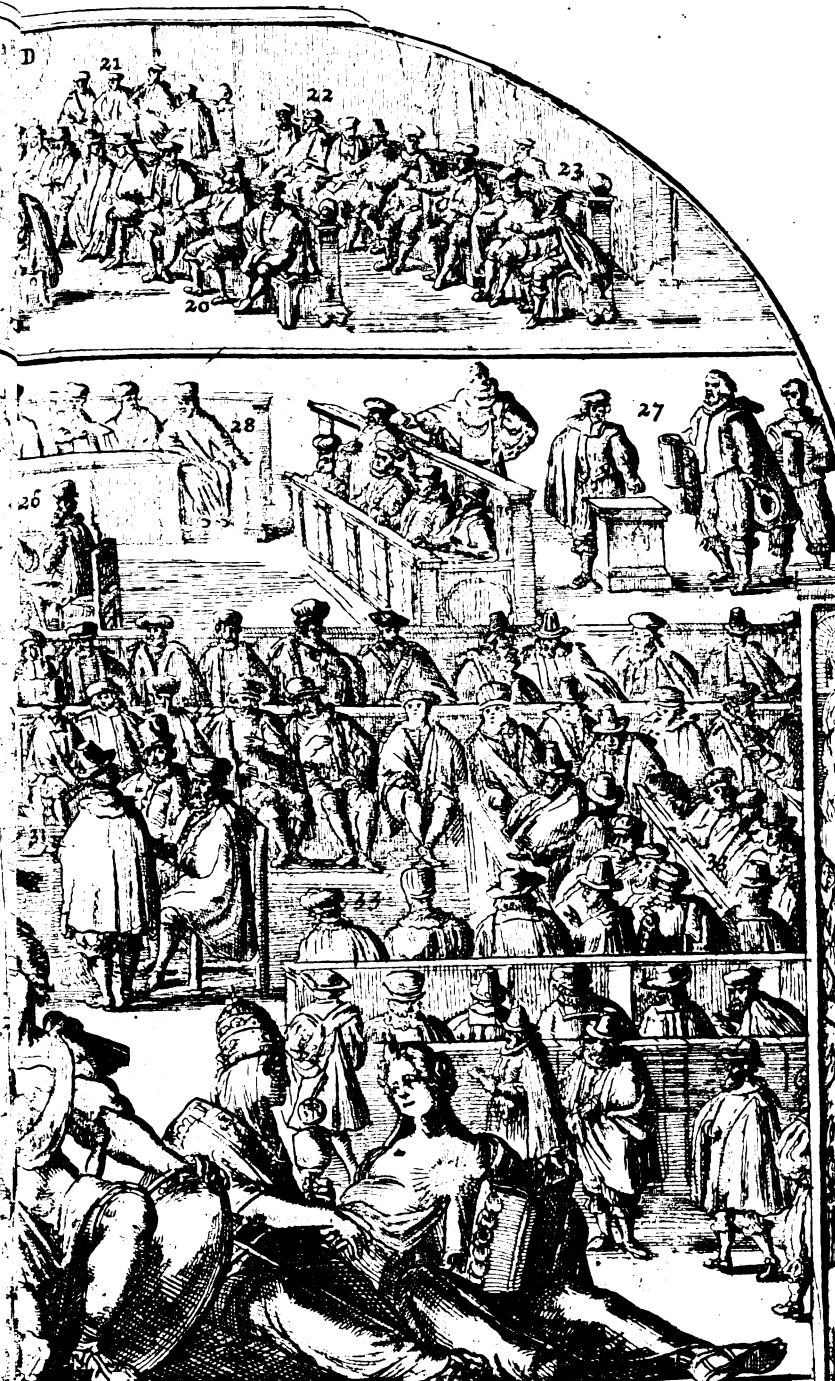 D
21
22
23
20
27
28
26